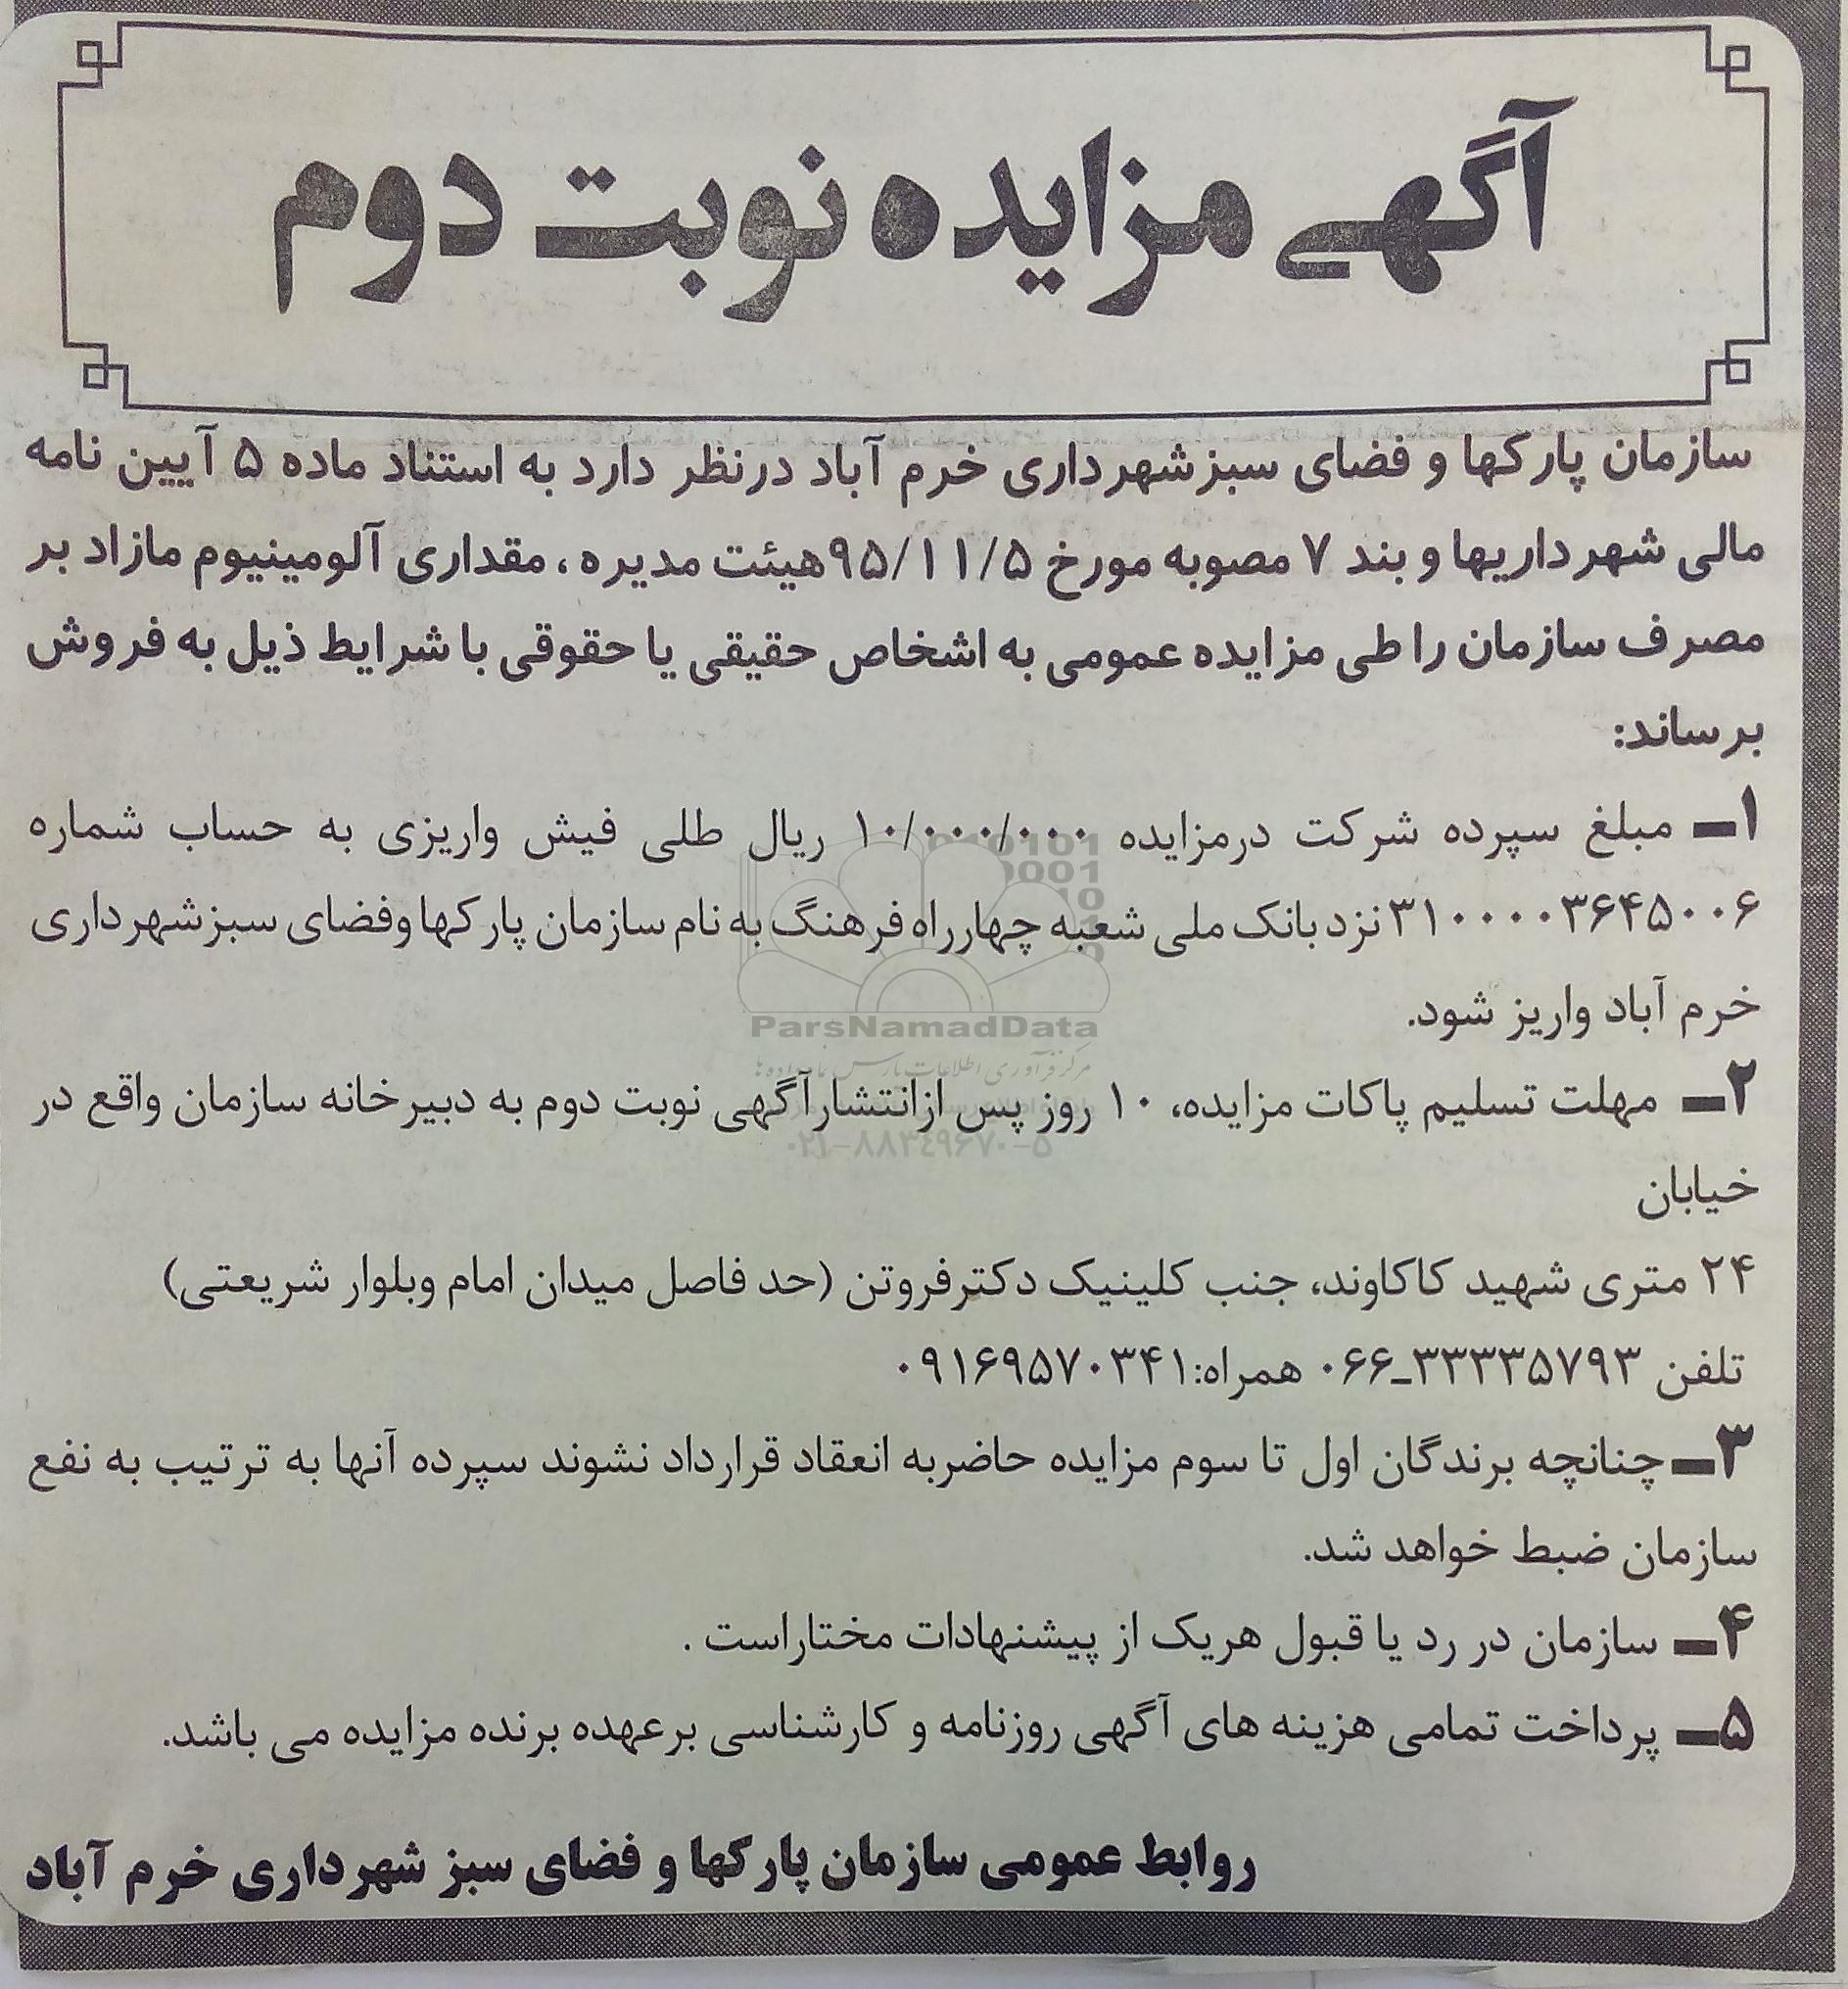 آگهی مزایده نوبت دوم
سازمان پارکها و فضای سبزشهرداری خرم آباد درنظر دارد به استناد ماده ۵ آیین نامه
مالی شهرداریها و بند ۷ مصوبه مورخ ۹۵/۱۱/۵هیئت مدیره، مقداری آلومینیوم مازاد بر
مصرف سازمان را طی مزایده عمومی به اشخاص حقیقی یا حقوقی با شرایط ذیل به فروش
برساند:
۱ـ مبلغ سپرده شرکت درمزایده ۱۰/۰۰۰/۰۰۰ ریال طلی فیش واریزی به حساب شماره
۳۱۰۰۰۰۳۶۴۵۰۰۶ نزد بانک ملی شعبه چهارراه فرهنگ به نام سازمان پارکها وفضای سبزشهرداری
خرم آباد واریز شود.
ParsNamadData
مرکز فرآوری اطلاعات پارس نماد داده ها
۲ـ مهلت تسلیم پاکات مزایده، ۱۰ روز پس ازانتشارآگهی نوبت دوم به دبیرخانه سازمان واقع در
۰۲۱-۸۸۳۴۹۶۷۰-۵
خیابان
۲۴ متری شهید کاکاوند، جنب کلینیک دکترفروتن (حد فاصل میدان امام وبلوار شریعتی)
تلفن ۳۳۳۳۵۷۹۳ـ۰۶۶ همراه:۰۹۱۶۹۵۷۰۳۴۱
۳ـ چنانچه برندگان اول تا سوم مزایده حاضربه انعقاد قرارداد نشوند سپرده آنها به ترتیب به نفع
سازمان ضبط خواهد شد.
۴ـ سازمان در رد یا قبول هریک از پیشنهادات مختاراست .
۵ـ پرداخت تمامی هزینه های آگهی روزنامه و کارشناسی برعهده برنده مزایده می باشد.
روابط عمومی سازمان پارکها و فضای سبز شهرداری خرم آباد